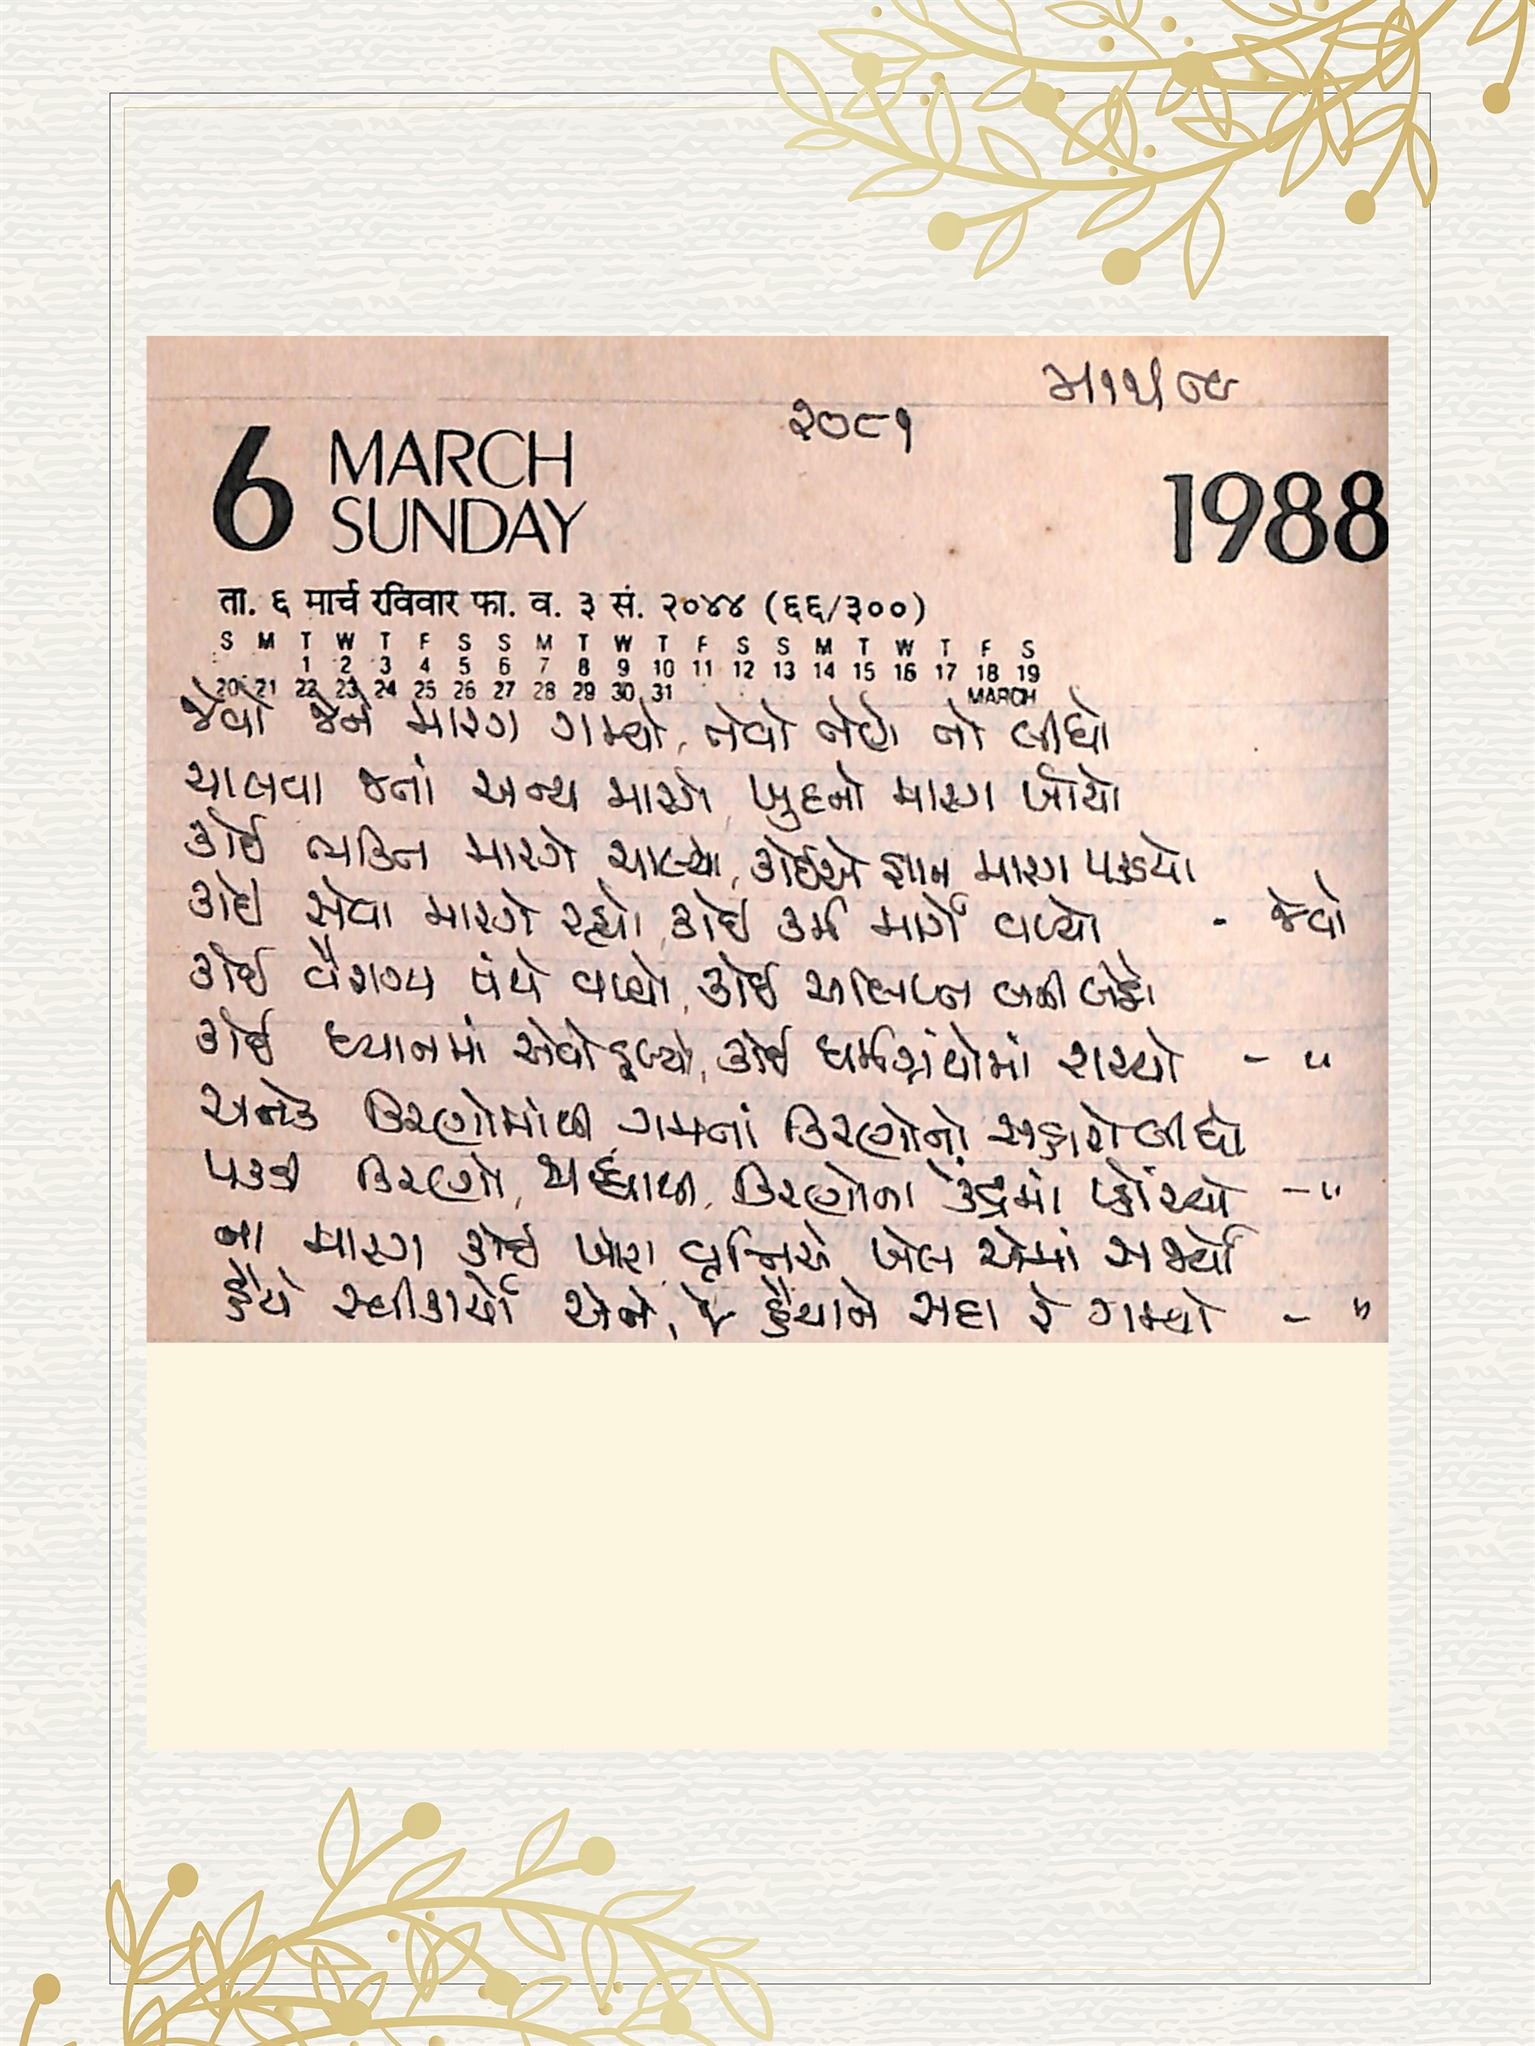 ૨૦૮૧
6 MARCH
SUNDAY
1988
ता. ६ मार्च रविवार फा. व. ३ सं. २०४४ (६६/३००)
S M T W T F S S M T W T F S S M T W T F S
1 2 3 4 5 6 7 8 9 10 11 12 13 14 15 16 17 18 19
20 21 22 23 24 25 26 27 28 29 30 31 MARCH
જેવો જેને મારગ ગમ્યો, તેવો તેણે તો લીધો
ચાલવા જતાં અન્ય મારગે, ખુદનો મારગ ખોયો
કોઈ ભક્તિ મારગે ચાલ્યા, કોઈએ જ્ઞાન મારગ પકડયો
કોઈ સેવા મારગે રહ્યો, કોઈ કર્મ માર્ગે વળ્યો - જેવો
કોઈ વૈરાગ્ય પંથે વળ્યો, કોઈ અલિપ્ત બની બેઠો
કોઈ ધ્યાનમાં એવો ડૂબ્યો, કોઈ ધર્મગ્રંથોમાં રાચ્યો - "
અનેક કિરણોમાંથી ગમતાં કિરણોનો સહારો લીધો
પકડી કિરણો, શ્રદ્ધાથી, કિરણોના કેંદ્રમાં પ્હોંચ્યો - "
ના મારગ કોઈ ખોટા, વૃત્તિએ ખેલ એમાં સર્જ્યો
હૈયે સ્વીકાર્યો એને, જે હૈયાને સદા રે ગમ્યો - "